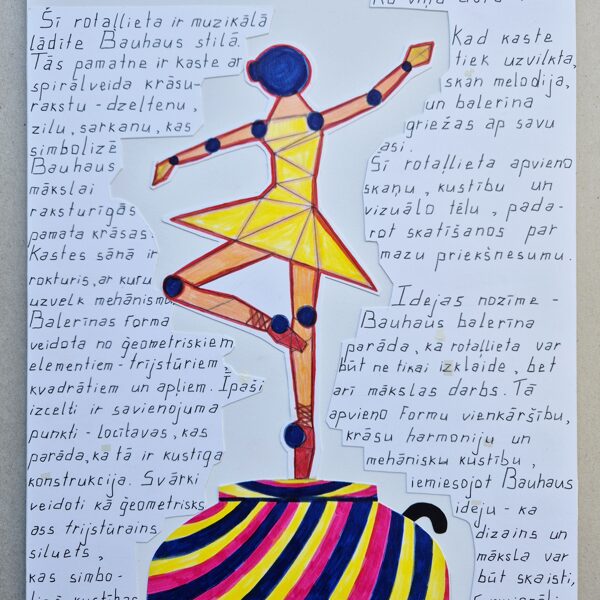 Šī rotaļlieta ir muzikālā
lādīte Bauhaus stilā.
Tās pamatne ir kaste ar
spirālveida krāsu-
rakstu - dzeltenu,
zilu, sarkanu, kas
simbolizē
Bauhaus
mākslai
raksturīgās
pamata krāsas.
Kastes sānā ir
rokturis, ar kuru
uzvelk mehānismu.
Balerīnas forma
veidota no ģeometriskiem
elementiem - trijstūriem,
kvadrātiem un apļiem. Īpaši
izcelti ir savienojuma
punkti - locītavas, kas
parāda, ka tā ir kustīga
konstrukcija. Svārki
veidoti kā ģeometrisks
ass trijstūrains
siluets,
kas simbo-
Kad kaste
tiek uzvilkta,
skan melodija,
un balerīna
griežas ap savu
asi.
Šī rotaļlieta apvieno
skaņu, kustību un
vizuālo tēlu, pada-
rot skatīšanos par
mazu priekšnesumu.
Idejas nozīme -
Bauhaus balerīna
parāda, ka rotaļlieta var
būt ne tikai izklaide, bet
arī mākslas darbs. Tā
apvieno formu vienkāršību,
krāsu harmoniju un
mehānisku kustību,
iemiesojot Bauhaus
ideju - ka
dizains un
māksla var
būt skaisti,